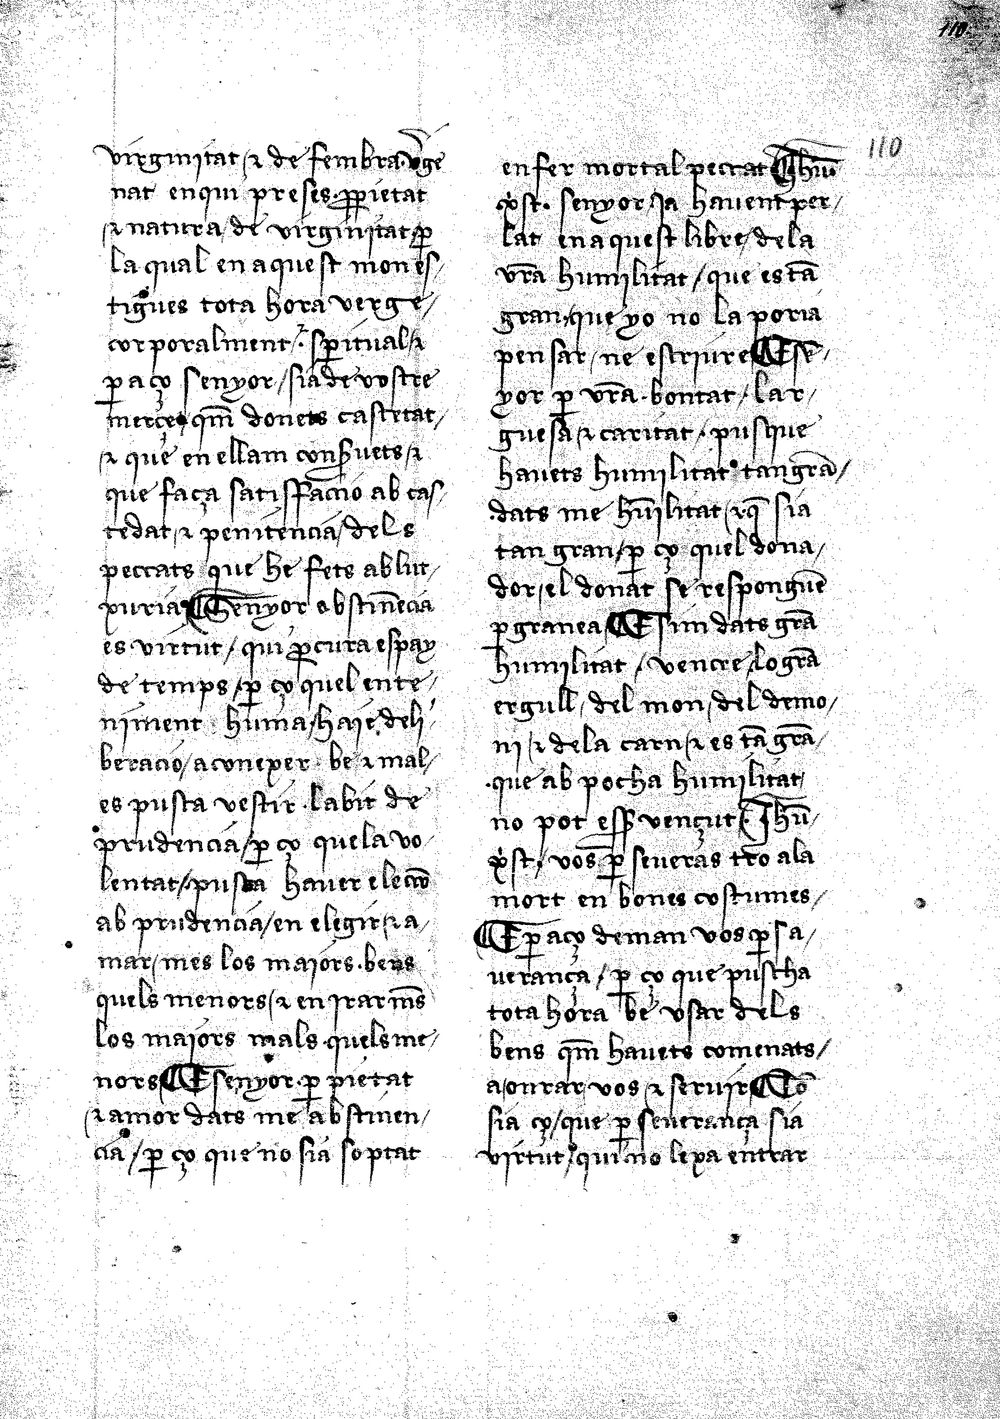 110
110
virginitat / ⁊ de fembra v̄ge
nat en qui preses ꝓpietat
⁊ natura / de virginitat / ꝑ
la qual en aquest mon es /
tigues tota hora verge /
corporalment / ⁊ sp̄itual / ⁊
ꝑ aço senyor / sia de vostre
merce / qm̄ donets castetat /
⁊ que en ella m conẜuets / ⁊
que faça satisffaccio ab cas /
tedat ⁊ penitencia / dels
peccats que he fets ab lut /
xuria ¶ Senyor abstinēcia
es virtut / qui ꝓcura espay
de temps / ꝑ ço quel ente /
niment huma / haie deli /
beracio / a conexer be ⁊ mal /
es pusta vestir labit de
prudencia / ꝑ ço que la vo /
lentat / pusca hauer eleccio
ab prudencia / en elegir ⁊ a /
mar / mes los maiors bens
quels menors / ⁊ en irar mēs
los maiors mals quels me /
nors ¶ E senyor ꝑ pietat
⁊ amor dats me abstinen /
cia / ꝑ ço que no sia soptat
en fer mortal peccat ¶ Jhū
xp̄st senyor / Ja hauent par /
lat en aquest libre / de la
vr̄a humilitat / que es tā
gran / que yo no la poria
pensar / ne escriure ¶ E sē /
yor ꝑ vr̄a bontat / lar /
guesa ⁊ caritat / pus que
hauets humilitat tan grā /
dats me hūilitat / ⁊ q̄ sia
tan gran / ꝑ ço quel dona /
dor / el donat se responguē
ꝑ granea ¶ E sim dats grā
humilitat / vencre lo grā
ergull / del mon / del demo /
ni / ⁊ de la carn / ⁊ es tā grā /
que ab pocha humilitat
no pot esẜ vençut ¶ Jhū /
xp̄st / vos ꝑseueras tro a la
mort en bones costumes /
¶ E ꝑ aço deman vos ꝑsa /
uerança / ꝑ ço que puscha
tota hora be vsar dels
bens qm̄ hauets comenats /
a onrar vos ⁊ seruir ¶ Cō
sia ço / que ꝑseuerança sia
virtut / qui no lexa entrar